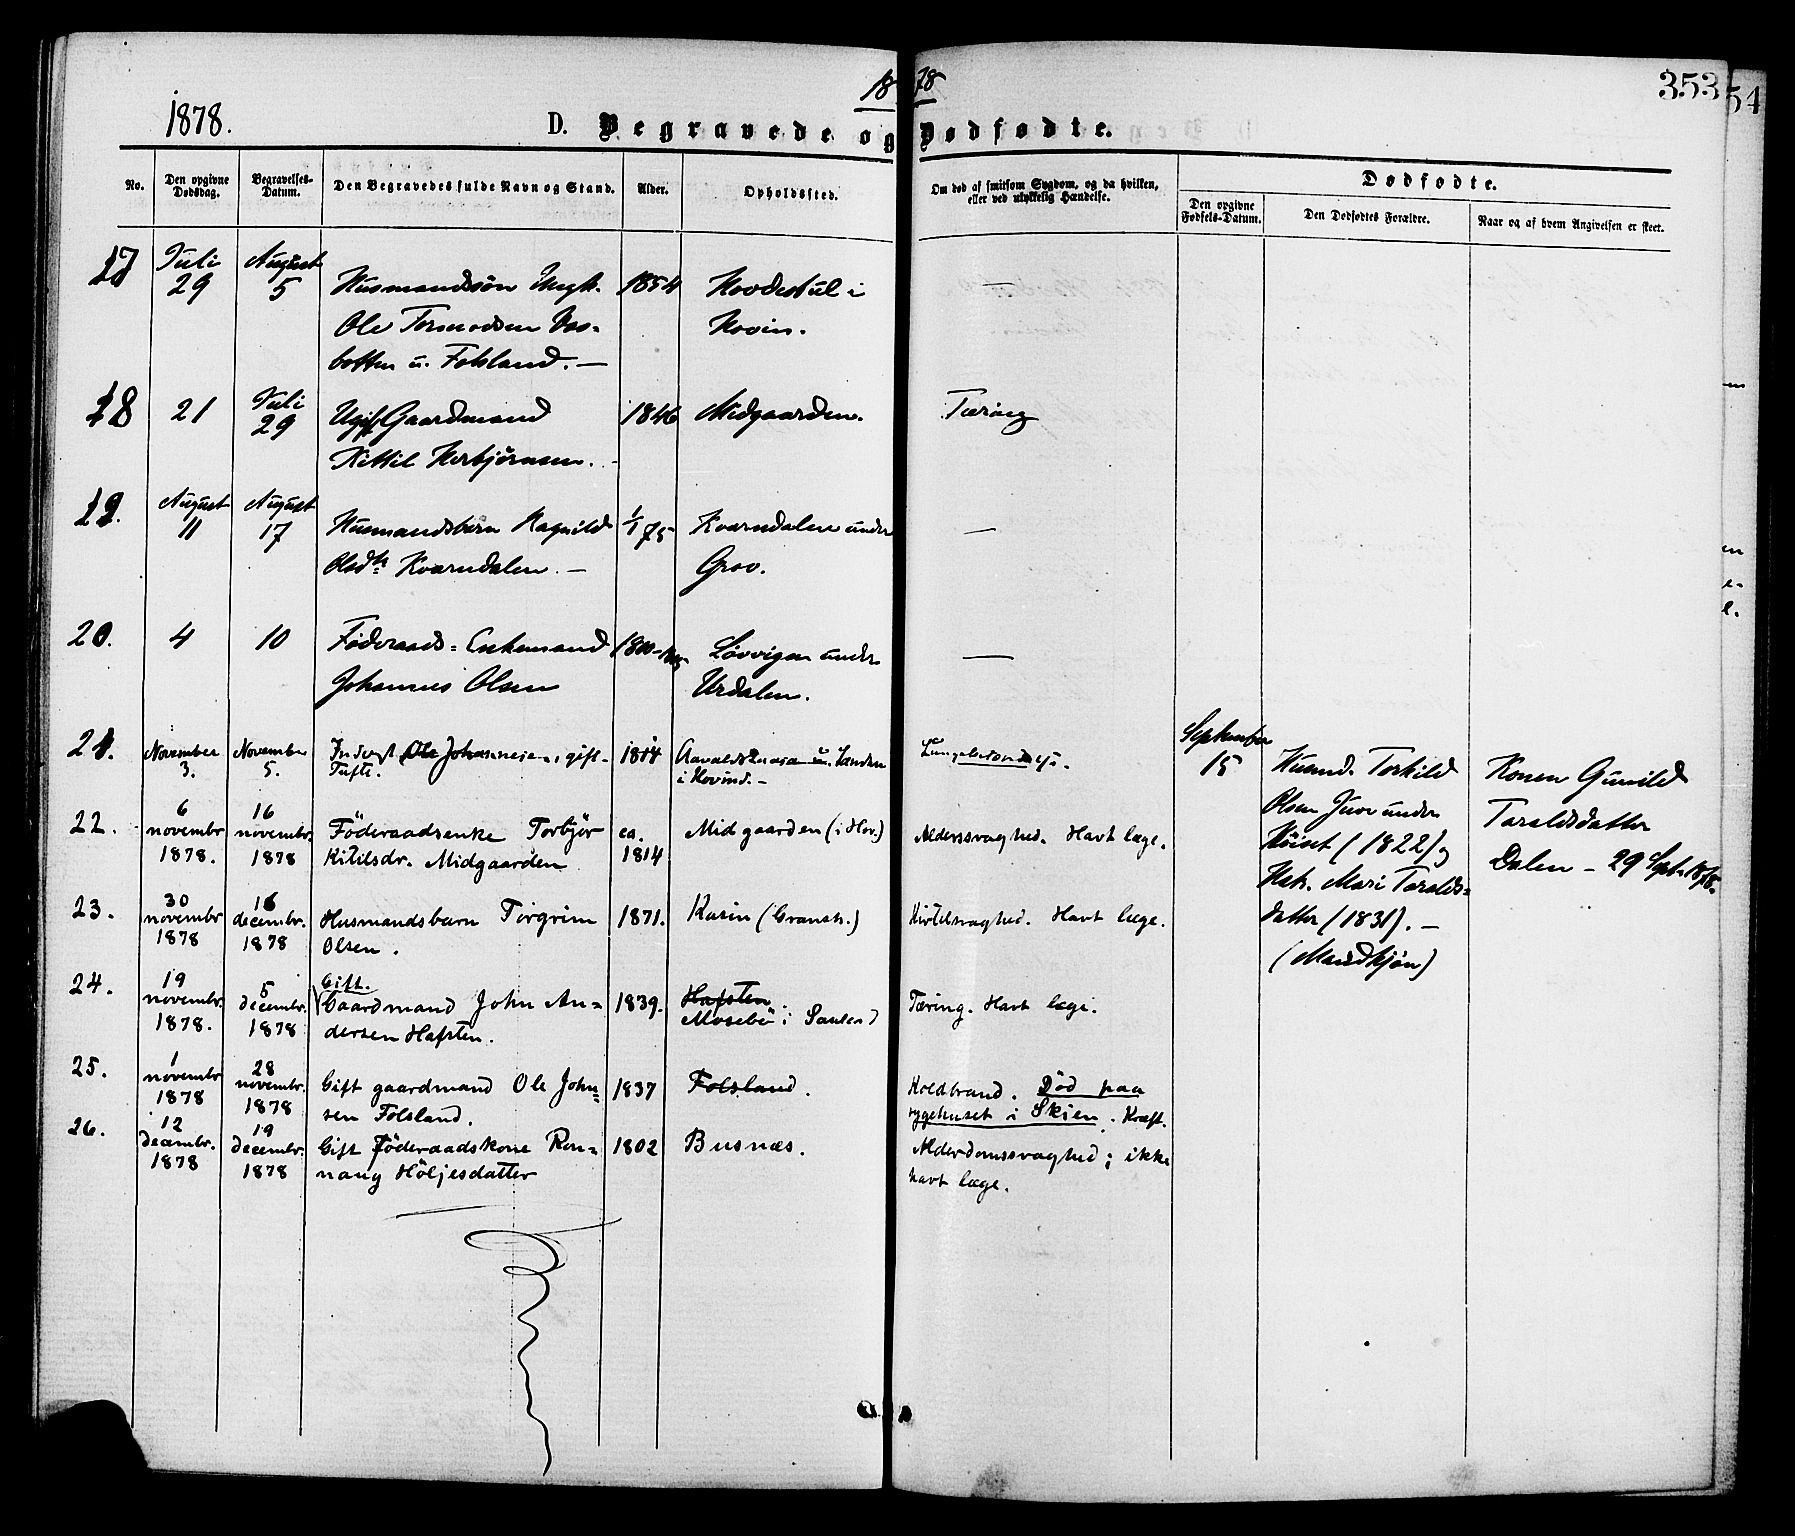 1878.
18 78
353
54
D. Begravede og Dødfødte.
No.
Den opgivne Dødsdag.
Begravelses-Datum.
Den Begravedes fulde Navn og Stand.
Alder.
Opholdssted.
Om død af smitsom Sygdom, og da hvilken, eller ved ulykkelig Hændelse.
Dødfødte.
Den opgivne Fødsels-Datum.
Den Dødfødtes Forældre.
Naar og af hvem Angivelsen er skeet.
17 Juli 29 August 5 Husmandssøn Ungk. 1854 Hovdestul i —
Ole Tormodsen Vos- Hovin.
botten u. Folsland. —
18 21 Juli 29 Ugift Gaardmand 1846 Midgaarden. Tæring
Kittil Herbjørnsen.
19. August 11 August 17 Husmandsbarn Ragnild 1/1 75 Kvarndalen under —
Olsdtr Kvarndalen. — Grov.
20. 4 10 Føderaads= Enkemand 1800 Løvvigen under —
Johannes Olsen Urdalen.
21. November 3. November 5. Inderst Ole Johannesen, gift 1814 u. Sanden
Tufte. i Hovind. —
22. 6 novembr 1878. 16 novembr. 1878 Føderaadsenke Torbjør ca. 1814 Midgaarden (i Hov.) Alderssvaghed. Havt læge.
Kitilsdr. Midgaarden
23. 30 novembr 1878 16 decembr. 1878 Husmandsbarn Torgrim 1871. Kasin (Gransh.) Kirtelsvaghed. Havt læge.
Olsen.
24. 19 novembr. 1878. 5 decembr. 1878 Gift. Gaardmand John An= 1839. Hafsten Tæring. Havt læge.
dersen Hafsten. Mosebø i Sauland
25. 1 novembr 1878 28 novembr. 1878 Gift gaardmand Ole John= 1837 Folsland. Koldbrand. Død paa
sen Folsland. sygehuset i Skien. Kræft.
26. 12 decembr. 1878 19 decembr. 1878 Gift Føderaadskone Ron= 1802 Busnæs. Alderdomssvaghed; ikke
naug Höljesdatter havt læge.
September 15
Husmd. Torkild
Olsen Juve under
Höiset (1822) og
Hstr. Mari Taralds=
datter (1831). —
(Mandkjøn)
Konen Gunild
Taraldsdatter
Dalen – 29 Sept. 1878.